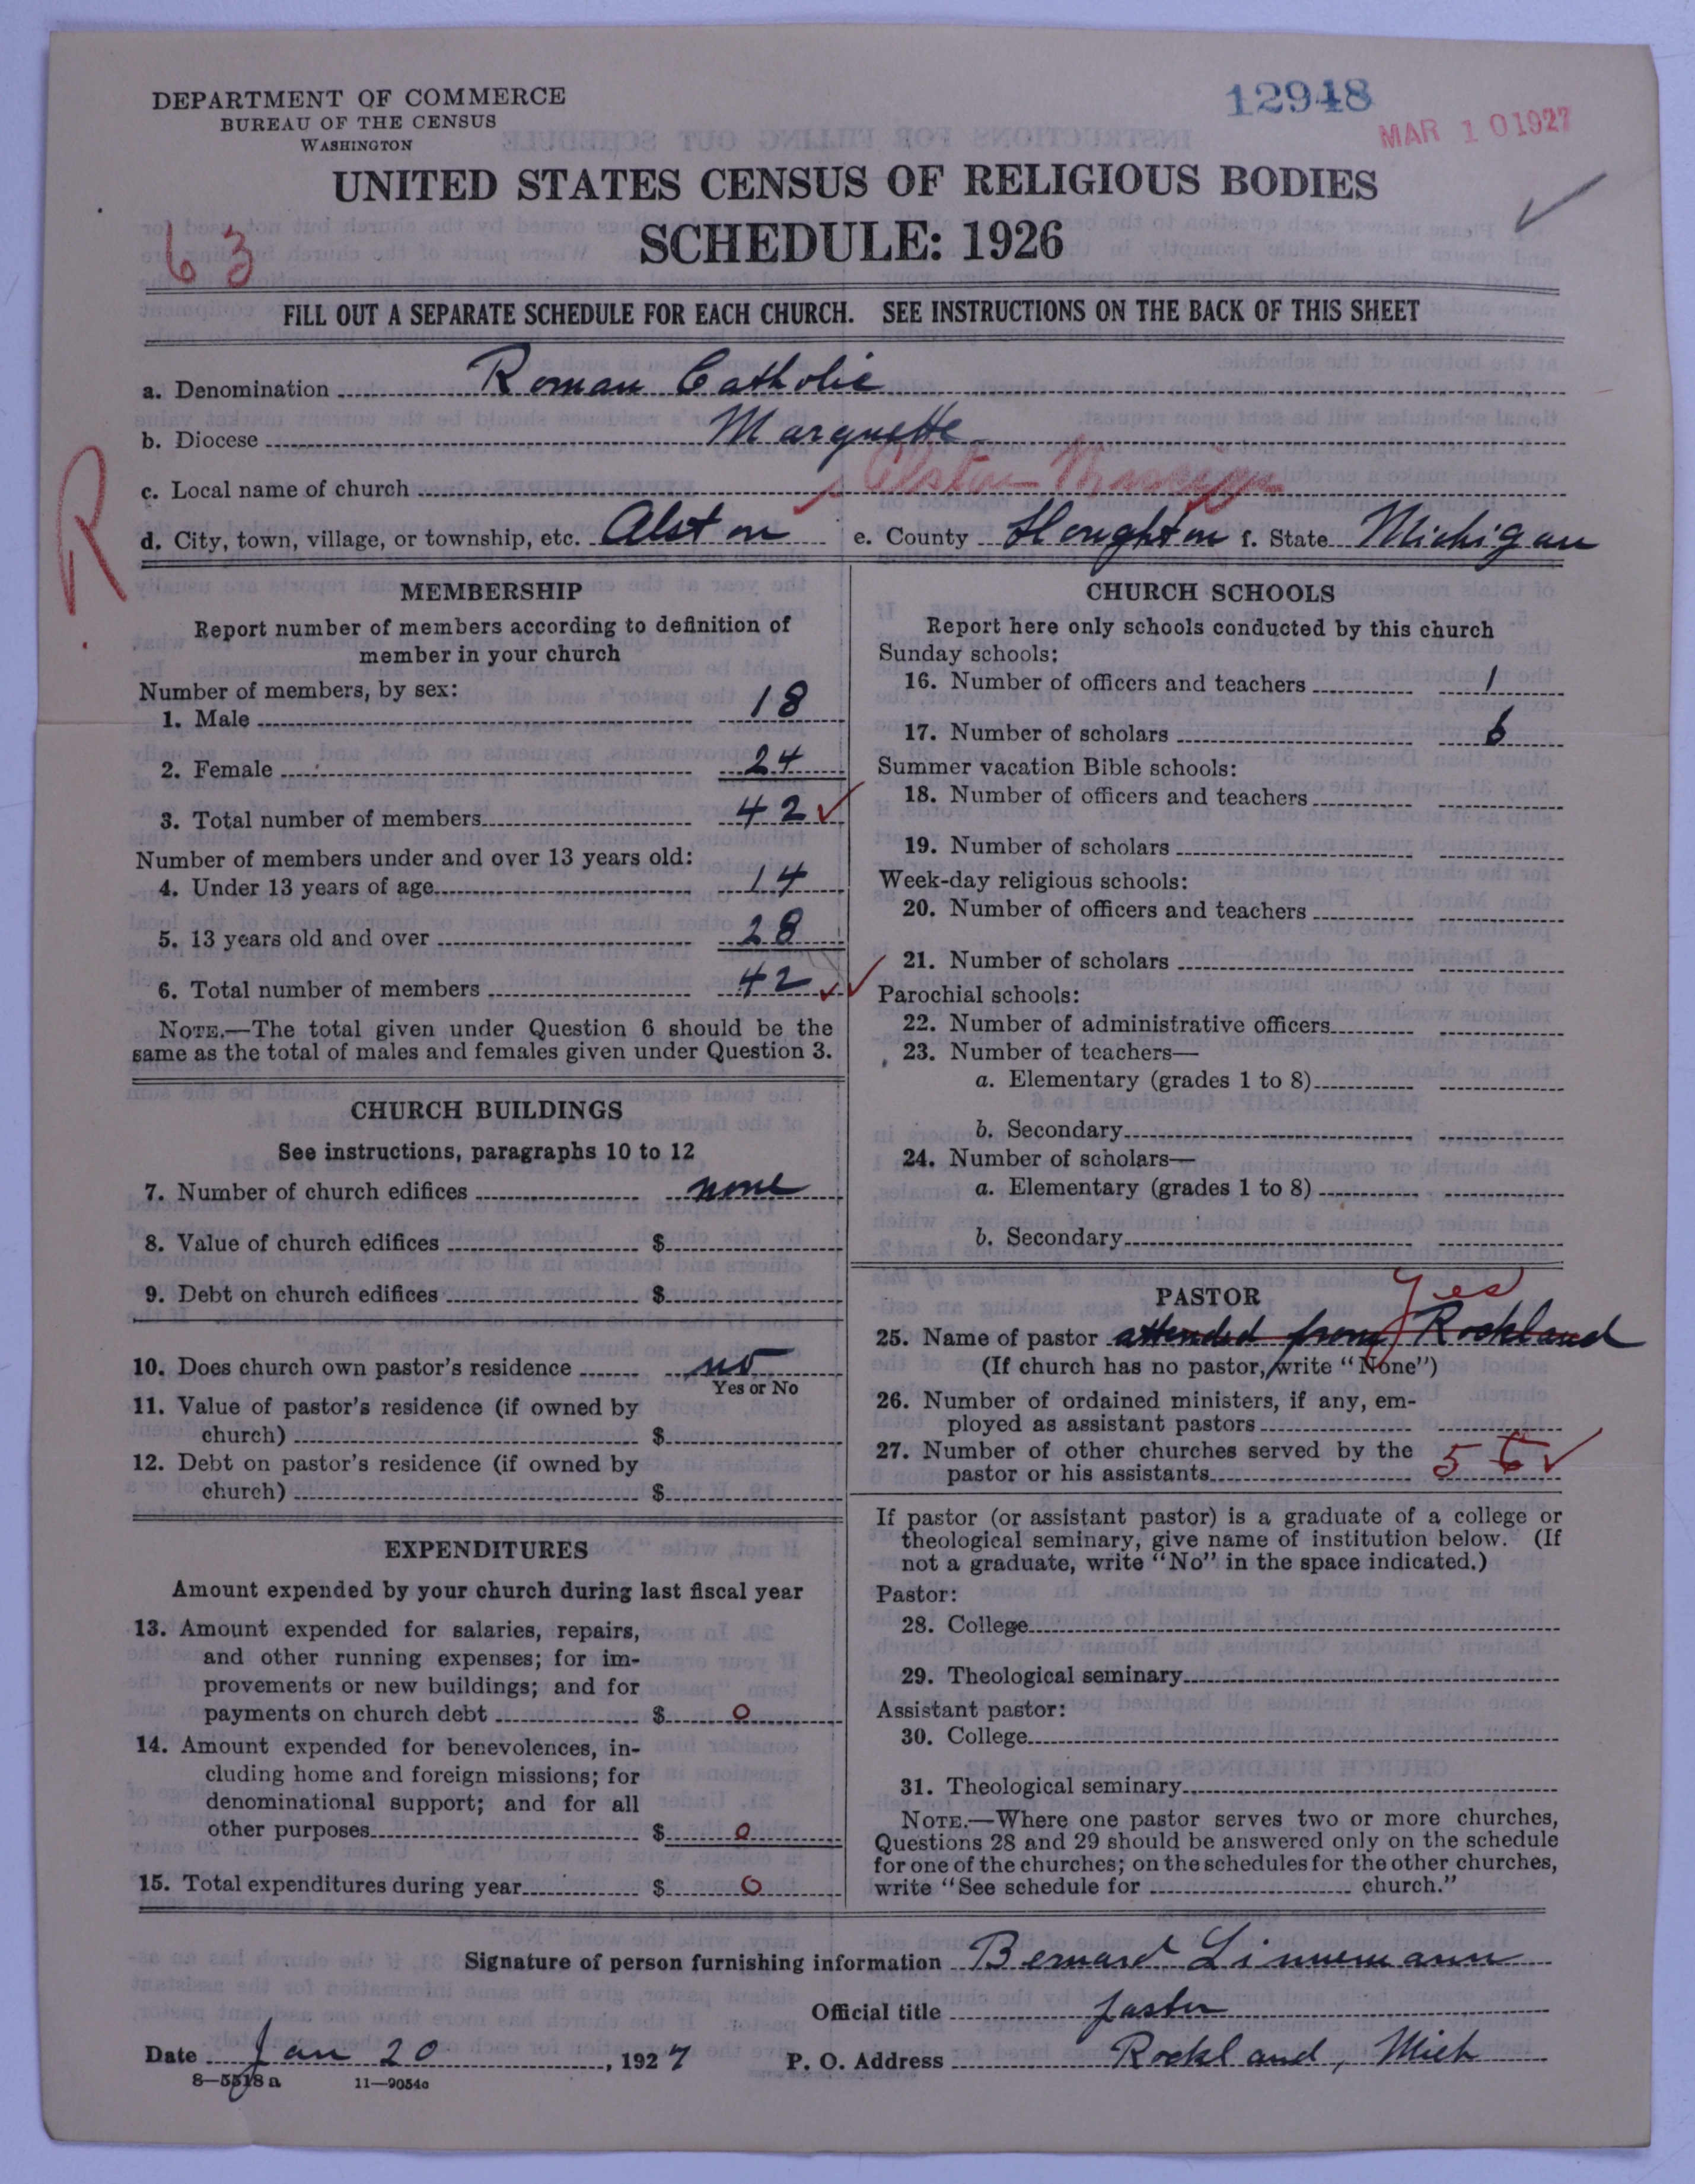 DEPARTMENT OF COMMERCE
BUREAU OF THE CENSUS
WASHINGTON
12948
MAR 10 1927
UNITED STATES CENSUS OF RELIGIOUS BODIES
SCHEDULE: 1926
63
FILL OUT A SEPARATE SCHEDULE FOR EACH CHURCH. SEE INSTRUCTIONS ON THE BACK OF THIS SHEET
a. Denomination Roman Catholic
b. Diocese Marquette
R
c. Local name of church Alston
d. City, town, village, or township, etc. Alston e. County Houghton f. State Michigan
MEMBERSHIP
Report number of members according to definition of
member in your church
Number of members, by sex:
1. Male 18
2. Female 24
3. Total number of members 42
Number of members under and over 13 years old:
4. Under 13 years of age 14
5. 13 years old and over 28
6. Total number of members 42
NOTE.—The total given under Question 6 should be the
same as the total of males and females given under Question 3.
CHURCH BUILDINGS
See instructions, paragraphs 10 to 12
7. Number of church edifices none
8. Value of church edifices $
9. Debt on church edifices $
10. Does church own pastor's residence no
Yes or No
11. Value of pastor's residence (if owned by
church) $
12. Debt on pastor's residence (if owned by
church) $
EXPENDITURES
Amount expended by your church during last fiscal year
13. Amount expended for salaries, repairs,
and other running expenses; for im-
provements or new buildings; and for
payments on church debt $ 0
14. Amount expended for benevolences, in-
cluding home and foreign missions; for
denominational support; and for all
other purposes $ 0
15. Total expenditures during year $ 0
CHURCH SCHOOLS
Report here only schools conducted by this church
Sunday schools:
16. Number of officers and teachers 1
17. Number of scholars 6
Summer vacation Bible schools:
18. Number of officers and teachers
19. Number of scholars
Week-day religious schools:
20. Number of officers and teachers
21. Number of scholars
Parochial schools:
22. Number of administrative officers
23. Number of teachers—
a. Elementary (grades 1 to 8)
b. Secondary
24. Number of scholars—
a. Elementary (grades 1 to 8)
b. Secondary
PASTOR
Yes
25. Name of pastor attended from Rockland
(If church has no pastor, write "None")
26. Number of ordained ministers, if any, em-
ployed as assistant pastors
27. Number of other churches served by the
pastor or his assistants 5
If pastor (or assistant pastor) is a graduate of a college or
theological seminary, give name of institution below. (If
not a graduate, write "No" in the space indicated.)
Pastor:
28. College
29. Theological seminary
Assistant pastor:
30. College
31. Theological seminary
NOTE.—Where one pastor serves two or more churches,
Questions 28 and 29 should be answered only on the schedule
for one of the churches; on the schedules for the other churches,
write "See schedule for church."
Signature of person furnishing information Bernard Linnemann
Official title pastor
Date Jan 20, 1927 P. O. Address Rockland, Mich
8—5518 a 11—9054a